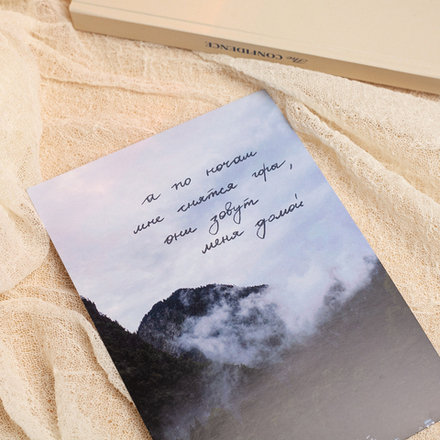 The CONFIDENCE
а по ночам
мне снятся горы,
они зовут
меня домой